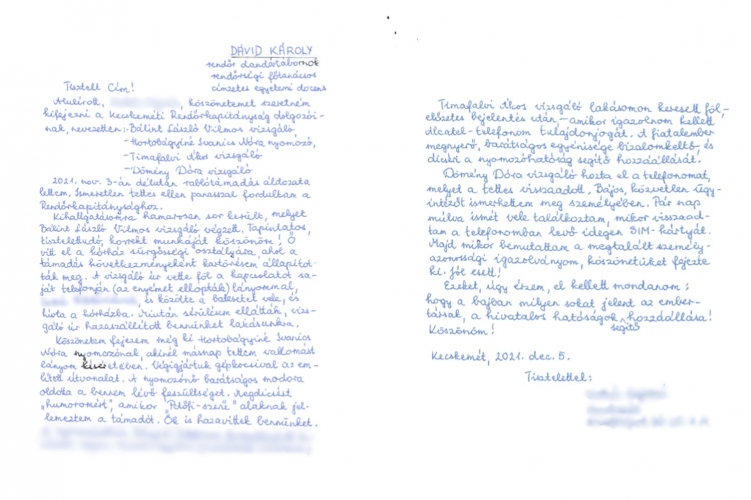 DÁVID KÁROLY
rendőr dandártábornok
rendőrségi főtanácsos
címzetes egyetemi docens
Tisztelt Cím!
Alulírott, köszönetemet szeretném
kifejezni a Kecskeméti Rendőrkapitányság dolgozói-
nak, nevezetten:-Bálint László Vilmos vizsgáló,
-Hortobágyiné Ivanics Nóra nyomozó,
-Timafalvi Ákos vizsgáló
-Dömény Dóra vizsgáló
2021. nov. 3-án délután rablótámadás áldozata
lettem. Ismeretlen tettes ellen panasszal fordultam a
Rendőrkapitánysághoz.
Kihallgatásomra hamarosan sor került, melyet
Bálint László Vilmos vizsgáló végzett. Tapintatos,
tisztelettudó, korrekt munkáját köszönöm! Ő
vitt el a kórház sürgősségi osztályára, ahol a
támadás következményeként kartörésem állapítot-
ták meg. A vizsgáló úr vette föl a kapcsolatot sa-
ját telefonján (az enyémet ellopták) lányommal,
és közölte a balesetet vele, és
hívta a kórházba. Miután sérülésem ellátták, vizs-
gáló úr hazaszállított bennünket lakásunkra.
Köszönetem fejezem még ki Hortobágyiné Ivanics
Nóra nyomozónak, akinél másnap tettem vallomást
lányom kíséretében. Végigjártuk gépkocsival az em-
lített útvonalat. A nyomozónő barátságos modora
oldotta a bennem lévő feszültséget. Megdicsért
„humoromért", amikor "Petőfi-szerű" alaknak jel-
lemeztem a támadót. Ők is hazavittek bennünket.
Timafalvi Ákos vizsgáló lakásomon keresett föl,
előzetes bejelentés után, – amikor igazolnom kellett
Alcatel-telefonom tulajdonjogát. A fiatalember
megnyerő, barátságos egyénisége bizalomkeltő, és
dícséri a nyomozóhatóság segítő hozzáállását.
Dömény Dóra vizsgáló hozta el a telefonomat,
melyet a tettes visszaadott. Bájos, közvetlen ügy-
intézőt ismerhettem meg személyében. Pár nap
múlva ismét vele találkoztam, mikor visszaad-
tam a telefonomban levő idegen SIM-kártyát.
Majd mikor bemutattam a megtalált személy-
azonossági igazolványom, köszönetüket fejezte
ki. Jól esett!
Ezeket, úgy érzem, el kellett mondanom:
hogy a bajban milyen sokat jelent az ember-
társak, a hivatalos hatóságok segítő hozzáállása!
Köszönöm!
Kecskemét, 2021. dec. 5.
Tisztelettel: